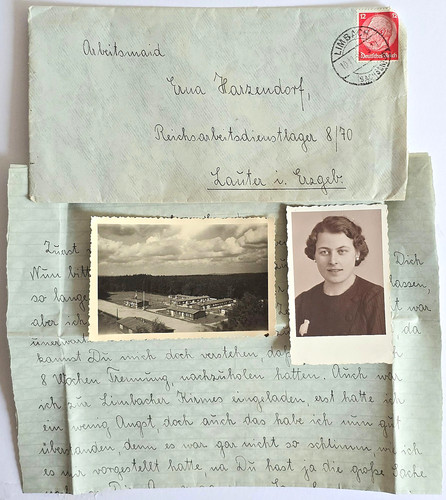 Arbeitsmaid
Erna Harzendorf,
Reichsarbeitsdienstlager 8/70
Lauter i. Erzgeb.
12 12
Deutsches Reich
LIMBACH
SACHSEN
Dich
Nun
so lange
aber
war
kannst Du mich doch verstehen,
8 Wochen Trennung, nachzuholen hatten. Auch war
ich zur Limbacher Kirmes eingeladen, erst hatte ich
ein wenig Angst, doch auch das habe ich nun gut
überstanden, denn es war gar nicht so schlimm, wie ich
es mir vorgestellt hatte, na Du hast ja die große Sache